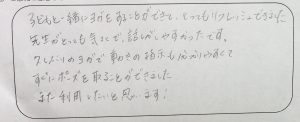 子どもと一緒にヨガをすることができて、とってもリフレッシュできました
先生がとっても気さくで、話しやすかったです。
久しぶりのヨガで動きの指示も分かりやすくて
すぐにポーズを取ることができました
また利用したいと思います!